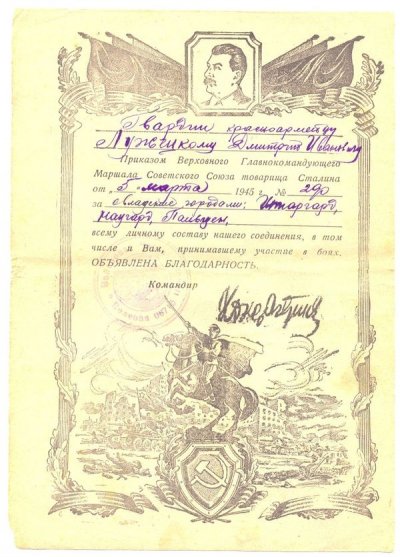 Гвардии красноармейцу
Дмитрий Иванович
Приказом Верховного Главнокомандующего
Маршала Советского Союза товарища Сталина
от „5" марта 1945 г. № 290
за овладение городами: Штаргард,
Наугард, Польцен,
всему личному составу нашего соединения, в том
числе и Вам, принимавшему участие в боях,
ОБЪЯВЛЕНА БЛАГОДАРНОСТЬ.
Командир